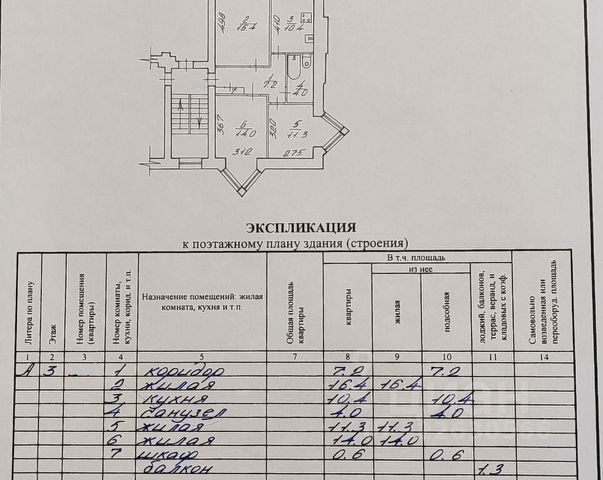 4.98
2
16.4
4.10
3
10.4
1
7.2
4
4.0
3.67
6
14.0
3.20
5
11.3
3.12
2.75
ЭКСПЛИКАЦИЯ
к поэтажному плану здания (строения)
Литера по плану
Этаж
Номер помещения (квартиры)
Номер комнаты, кухни, корид. и т.п.
Назначение помещений: жилая комната, кухня и т.п.
Общая площадь квартиры
В т.ч. площадь
квартиры
из нее
жилая
подсобная
лоджий, балконов, террас, веранд, и кладовых с коэф.
Самовольно возведенная или переоборуд. площадь
1 2 3 4 5 7 8 9 10 11 14
А 3 1 коридор 7.2 7.2
2 жилая 16.4 16.4
3 кухня 10.4 10.4
4 санузел 4.0 4.0
5 жилая 11.3 11.3
6 жилая 14.0 14.0
7 шкаф 0.6 0.6
балкон 1.3